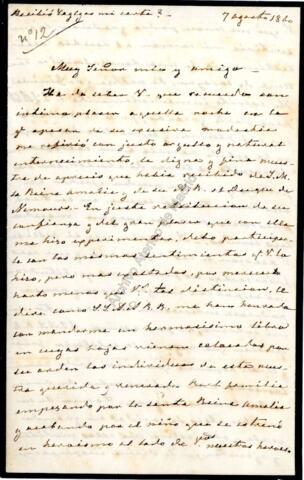 Recibió Vagezas mi carta?
7 agosto 1860
nº 12
Muy Señor mio y amigo
Ha de saber V. que recuerdo con
intimo placer aquella noche en la
qe. apesar de su excesiva modestia
me refirió con justo orgullo y natural
enternecimiento, la digna y fina mues-
tra de aprecio que habia recibido de S.M.
la Reina Amalia, y de su A.R. el Duque de
Nemours. En justa retribucion de su
confianza y del gran placer que con ella
me hizo experimentar, debo participar-
le con los mismos sentimientos qe. V. lo
hizo, pero mas exaltados, pues merezco
harto menos que V. tal distincion, le
diré como SS.AA.RR. me han honrado
con mandarme un hermosisimo libro
en cuyas hojas vienen colocados por
su orden los individuos de esta nues-
tra querida y venerada Real familia
empezando por la santa Reina Amelia
y acabando por el niño que se estrenó
en heroismo al lado de Vds. nuestros heroes.